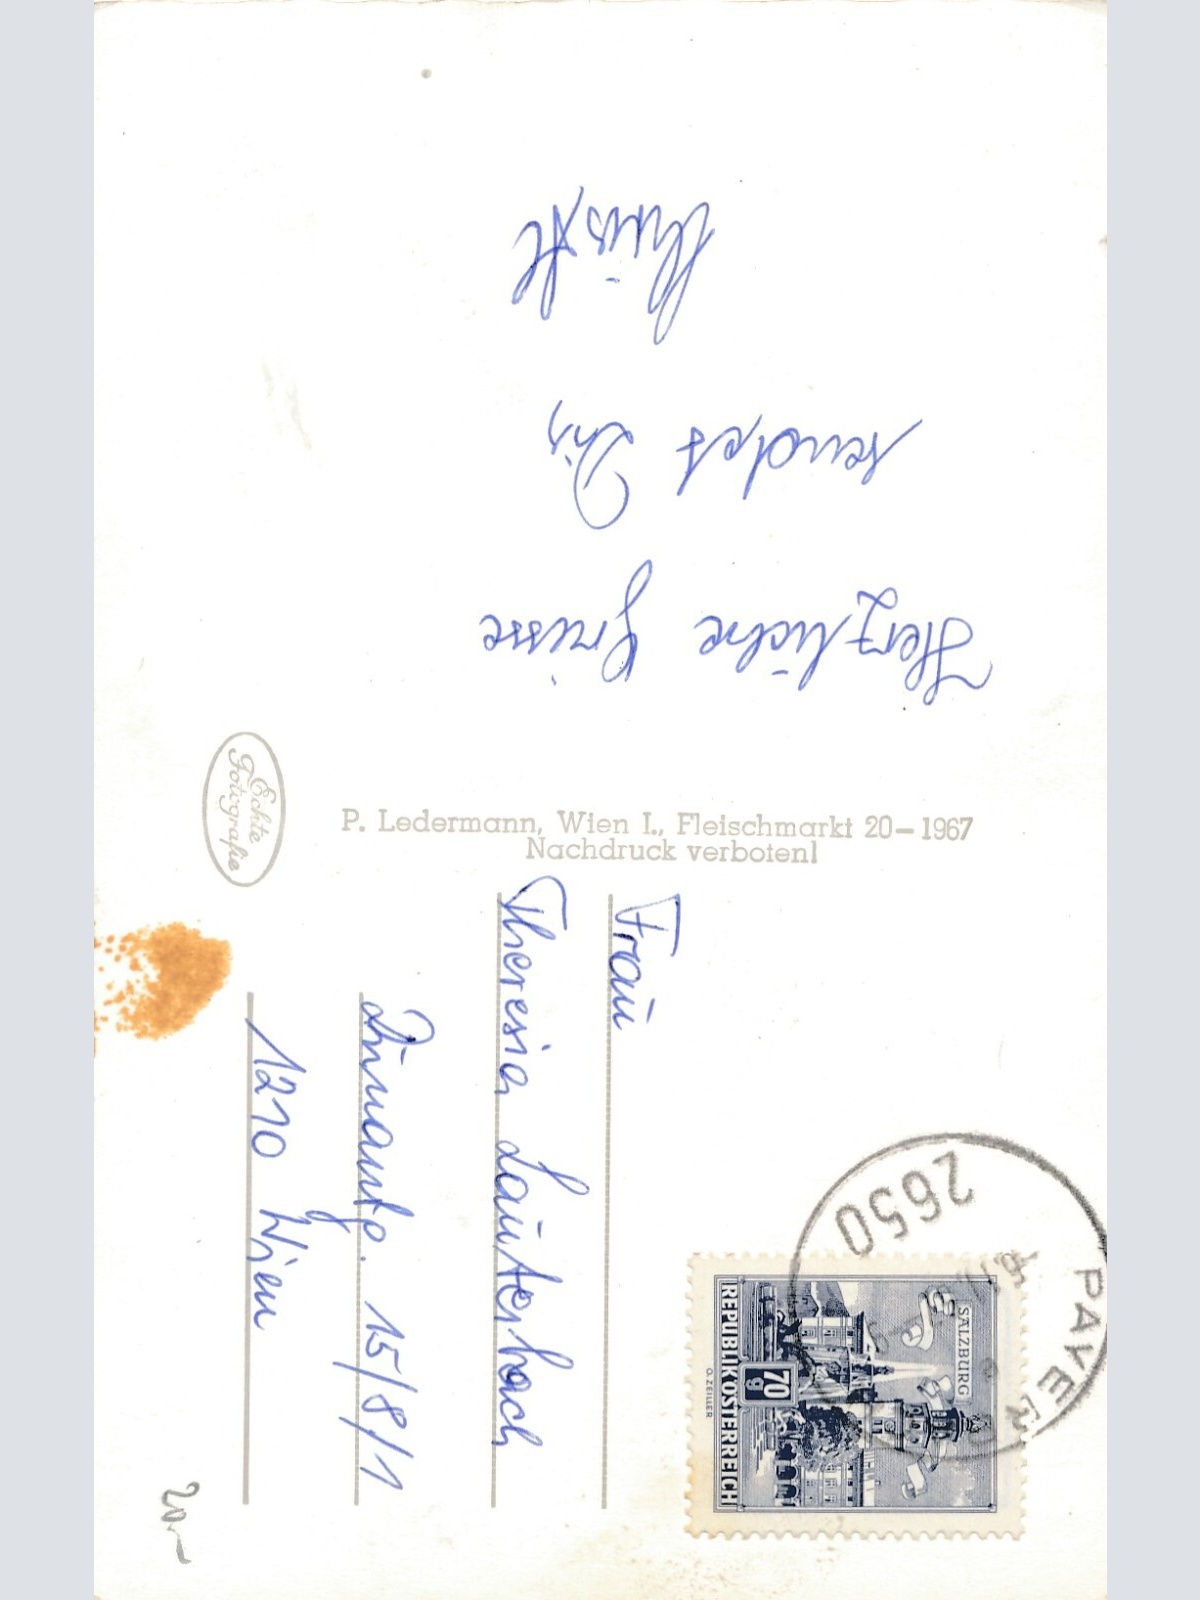 Herzliche Grüsse
sendet Dir,
Christl
Echte
Fotografie
P. Ledermann, Wien I., Fleischmarkt 20–1967
Nachdruck verboten!
Frau
Theresia Lauterbach
15/8/1
1210 Wien
2650
PAYER
SALZBURG
70
g
REPUBLIK ÖSTERREICH
O. ZEILLER
20,-